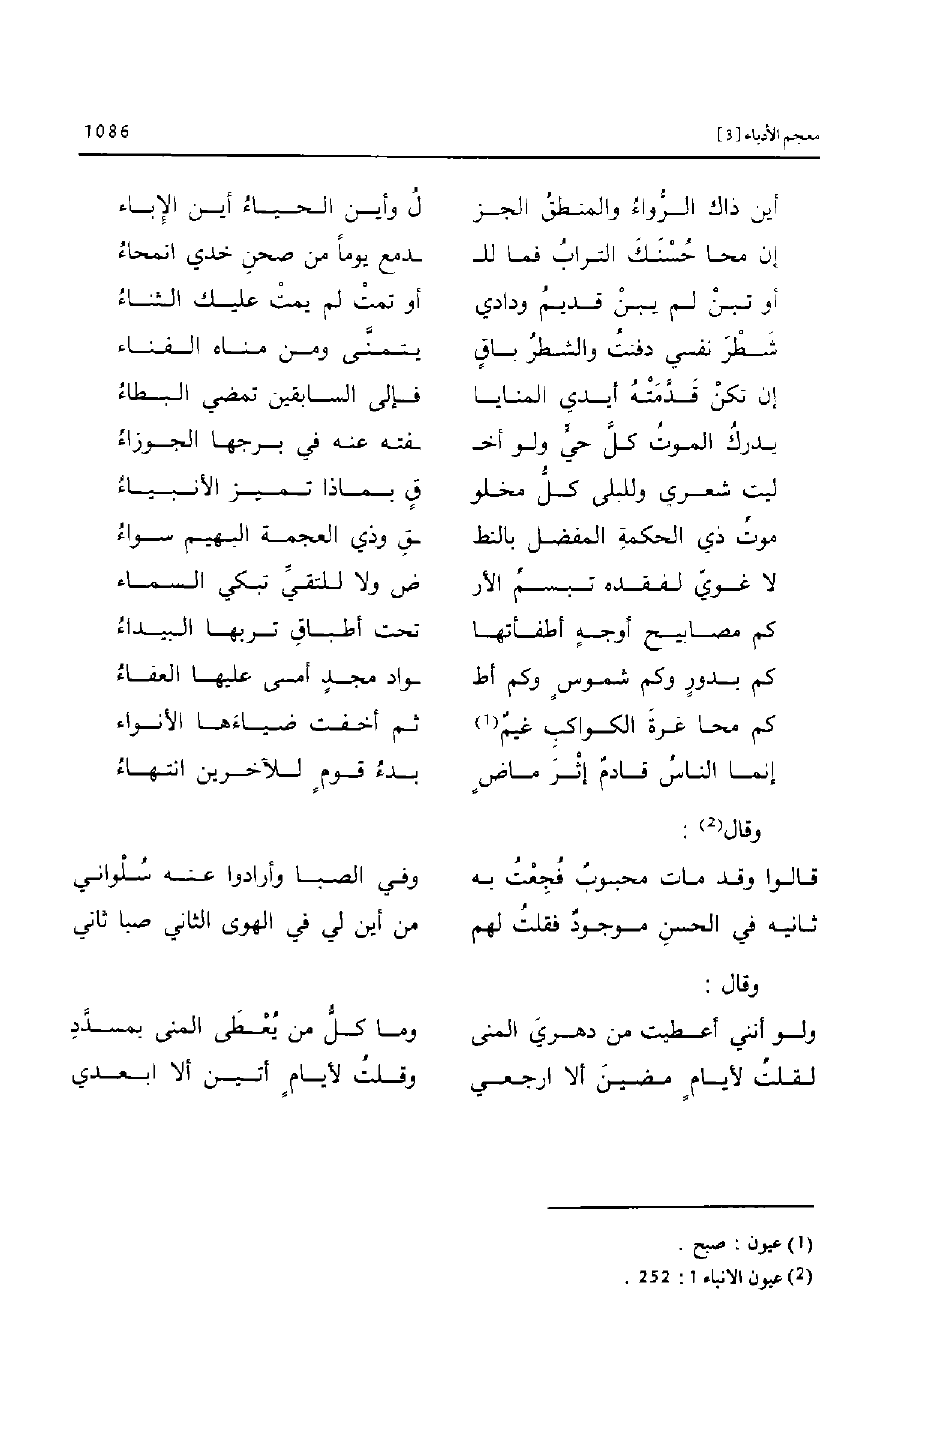 معجم الأدباء [3] 1086
أين ذاك الرُّواءُ والمنطقُ الجز لُ وأين الحياءُ أين الإباء
إن محا حُسْنَكَ الترابُ فما للد دمع يوماً من صحن خدي انمحاءُ
أو تبنْ لم يبنْ قديمُ ودادي أو تمتْ لم يمتْ عليك الثناءُ
شطرُ نفسي دفنتُ والشطرُ باقٍ يتمنّى ومن مناه الفناء
إن تكنْ قدّمتْه أيدي المنايا فإلى السابقين تمضي البطاءُ
يدركُ الموتُ كلّ حيٍّ ولو أخـ ـفته عنه في برجها الجوزاءُ
ليت شعري وللبلى كلُّ مخلو قٍ بماذا تميز الأنبياءُ
موتُ ذي الحكمة المفضل بالنط ـق وذي العجمة البهيم سواءُ
لا غويّ لفقده تبسمُ الأر ض ولا للتقيِّ تبكي السماء
كم مصابيح أوجهٍ أطفأتها تحت أطباق تربها البيداءُ
كم بدورٍ وكم شموسٍ وكم أط ـواد مجدٍ أمسى عليها العفاءُ
كم محا غرةَ الكواكبِ غيمٌ(1) ثم أخفت ضياءها الأنواء
إنما الناسُ قادمٌ إثْرَ ماضٍ بدءُ قومٍ للآخرين انتهاءُ
وقال(2) :
قالوا وقد مات محبوبٌ فُجِعْتُ به وفي الصبا وأرادوا عنه سُلْواني
ثانيه في الحسن موجودٌ فقلتُ لهم من أين لي في الهوى الثاني صبا ثاني
وقال :
ولو أنني أعطيت من دهريَ المنى وما كلُّ من يُعْطَى المنى بمسدَّدِ
لقلتُ لأيامٍ مضينَ ألا ارجعي وقلتُ لأيامٍ أتين ألا ابعدي
(1) عيون : صبح .
(2) عيون الانباء 1 : 252 .